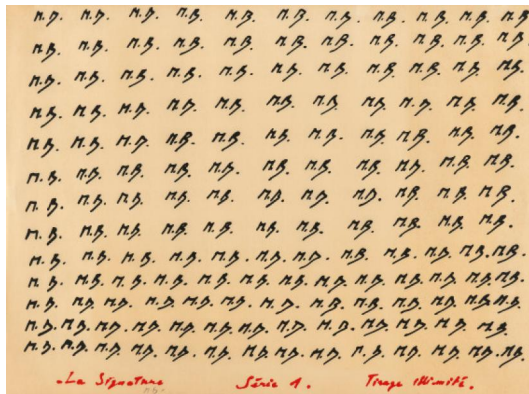 M.B. M.B. M.B. M.B. M.B. M.B. M.B. M.B. M.B. M.B. M.B. M.B.
M.B. M.B. M.B. M.B. M.B. M.B. M.B. M.B. M.B. M.B. M.B. M.B.
M.B. M.B. M.B. M.B. M.B. M.B. M.B. M.B. M.B. M.B. M.B. M.B.
M.B. M.B. M.B. M.B. M.B. M.B. M.B. M.B. M.B. M.B. M.B.
M.B. M.B. M.B. M.B. M.B. M.B. M.B. M.B. M.B. M.B. M.B.
M.B. M.B. M.B. M.B. M.B. M.B. M.B. M.B. M.B. M.B. M.B.
M.B. M.B. M.B. M.B. M.B. M.B. M.B. M.B. M.B. M.B. M.B.
M.B. M.B. M.B. M.B. M.B. M.B. M.B. M.B. M.B. M.B. M.B.
M.B. M.B. M.B. M.B. M.B. M.B. M.B. M.B. M.B. M.B. M.B. M.B. M.B.
M.B. M.B. M.B. M.B. M.B. M.B. M.B. M.B. M.B. M.B. M.B. M.B. M.B.
M.B. M.B. M.B. M.B. M.B. M.B. M.B. M.B. M.B. M.B. M.B. M.B. M.B.
M.B. M.B. M.B. M.B. M.B. M.B. M.B. M.B. M.B. M.B. M.B. M.B. M.B.
M.B. M.B. M.B. M.B. M.B. M.B. M.B. M.B. M.B. M.B. M.B. M.B. M.B. M.B.
La Signature Série 1. Tirage illimité.